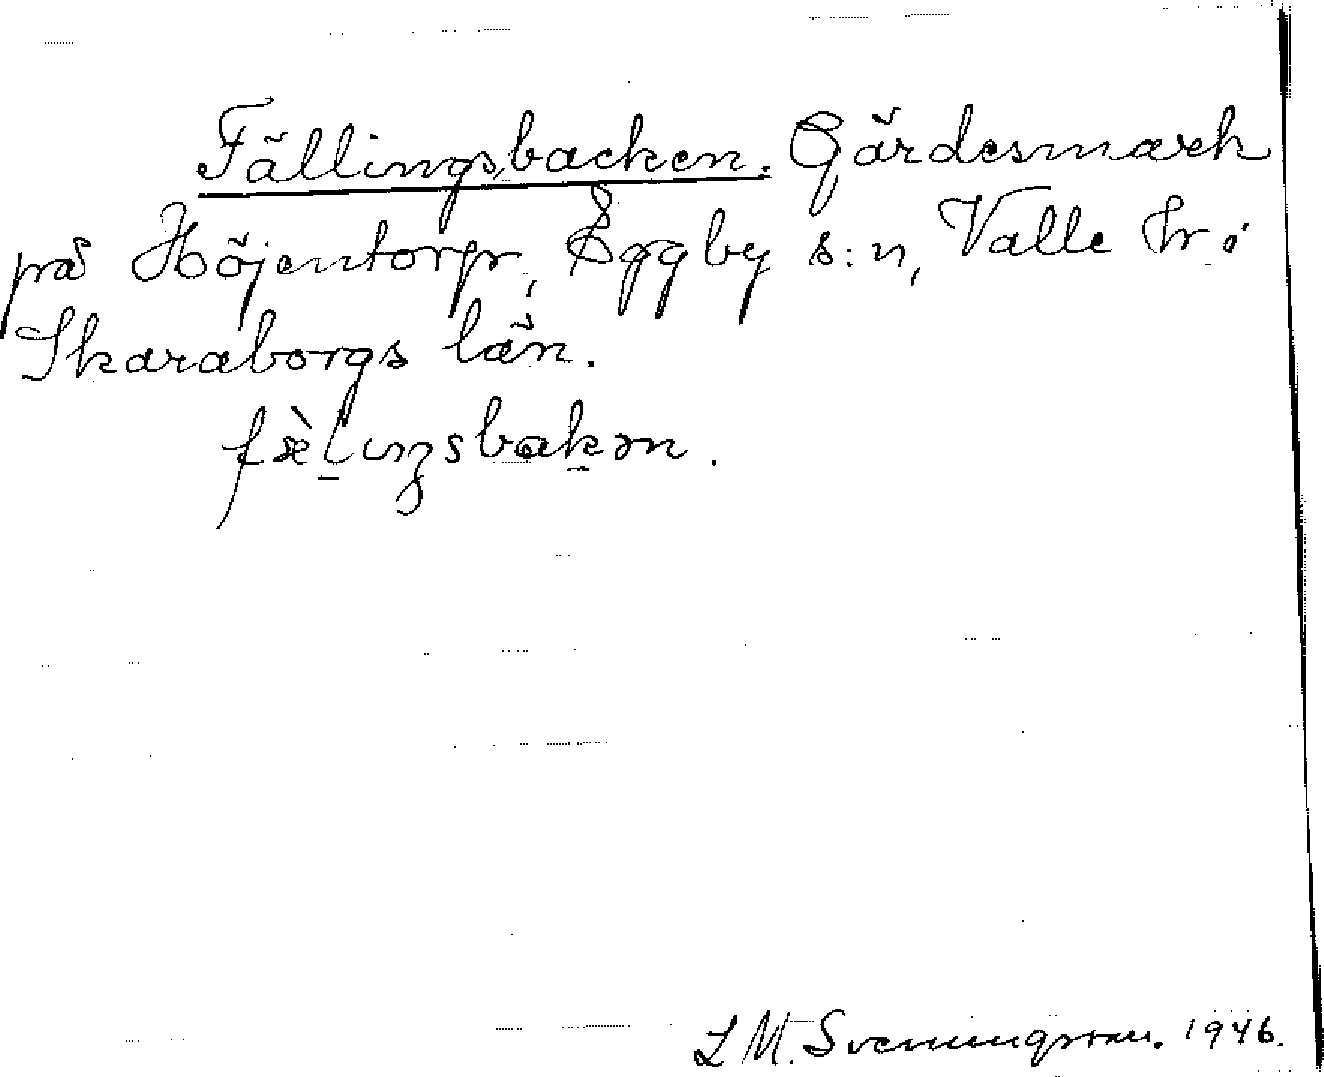 Fällingsbacken. Gärdesmark
på Höjentorp, Eggby s:n, Valle hr i
Skaraborgs län.
fæ̀lıŋsbakən.
L M. Svenungsson. 1946.